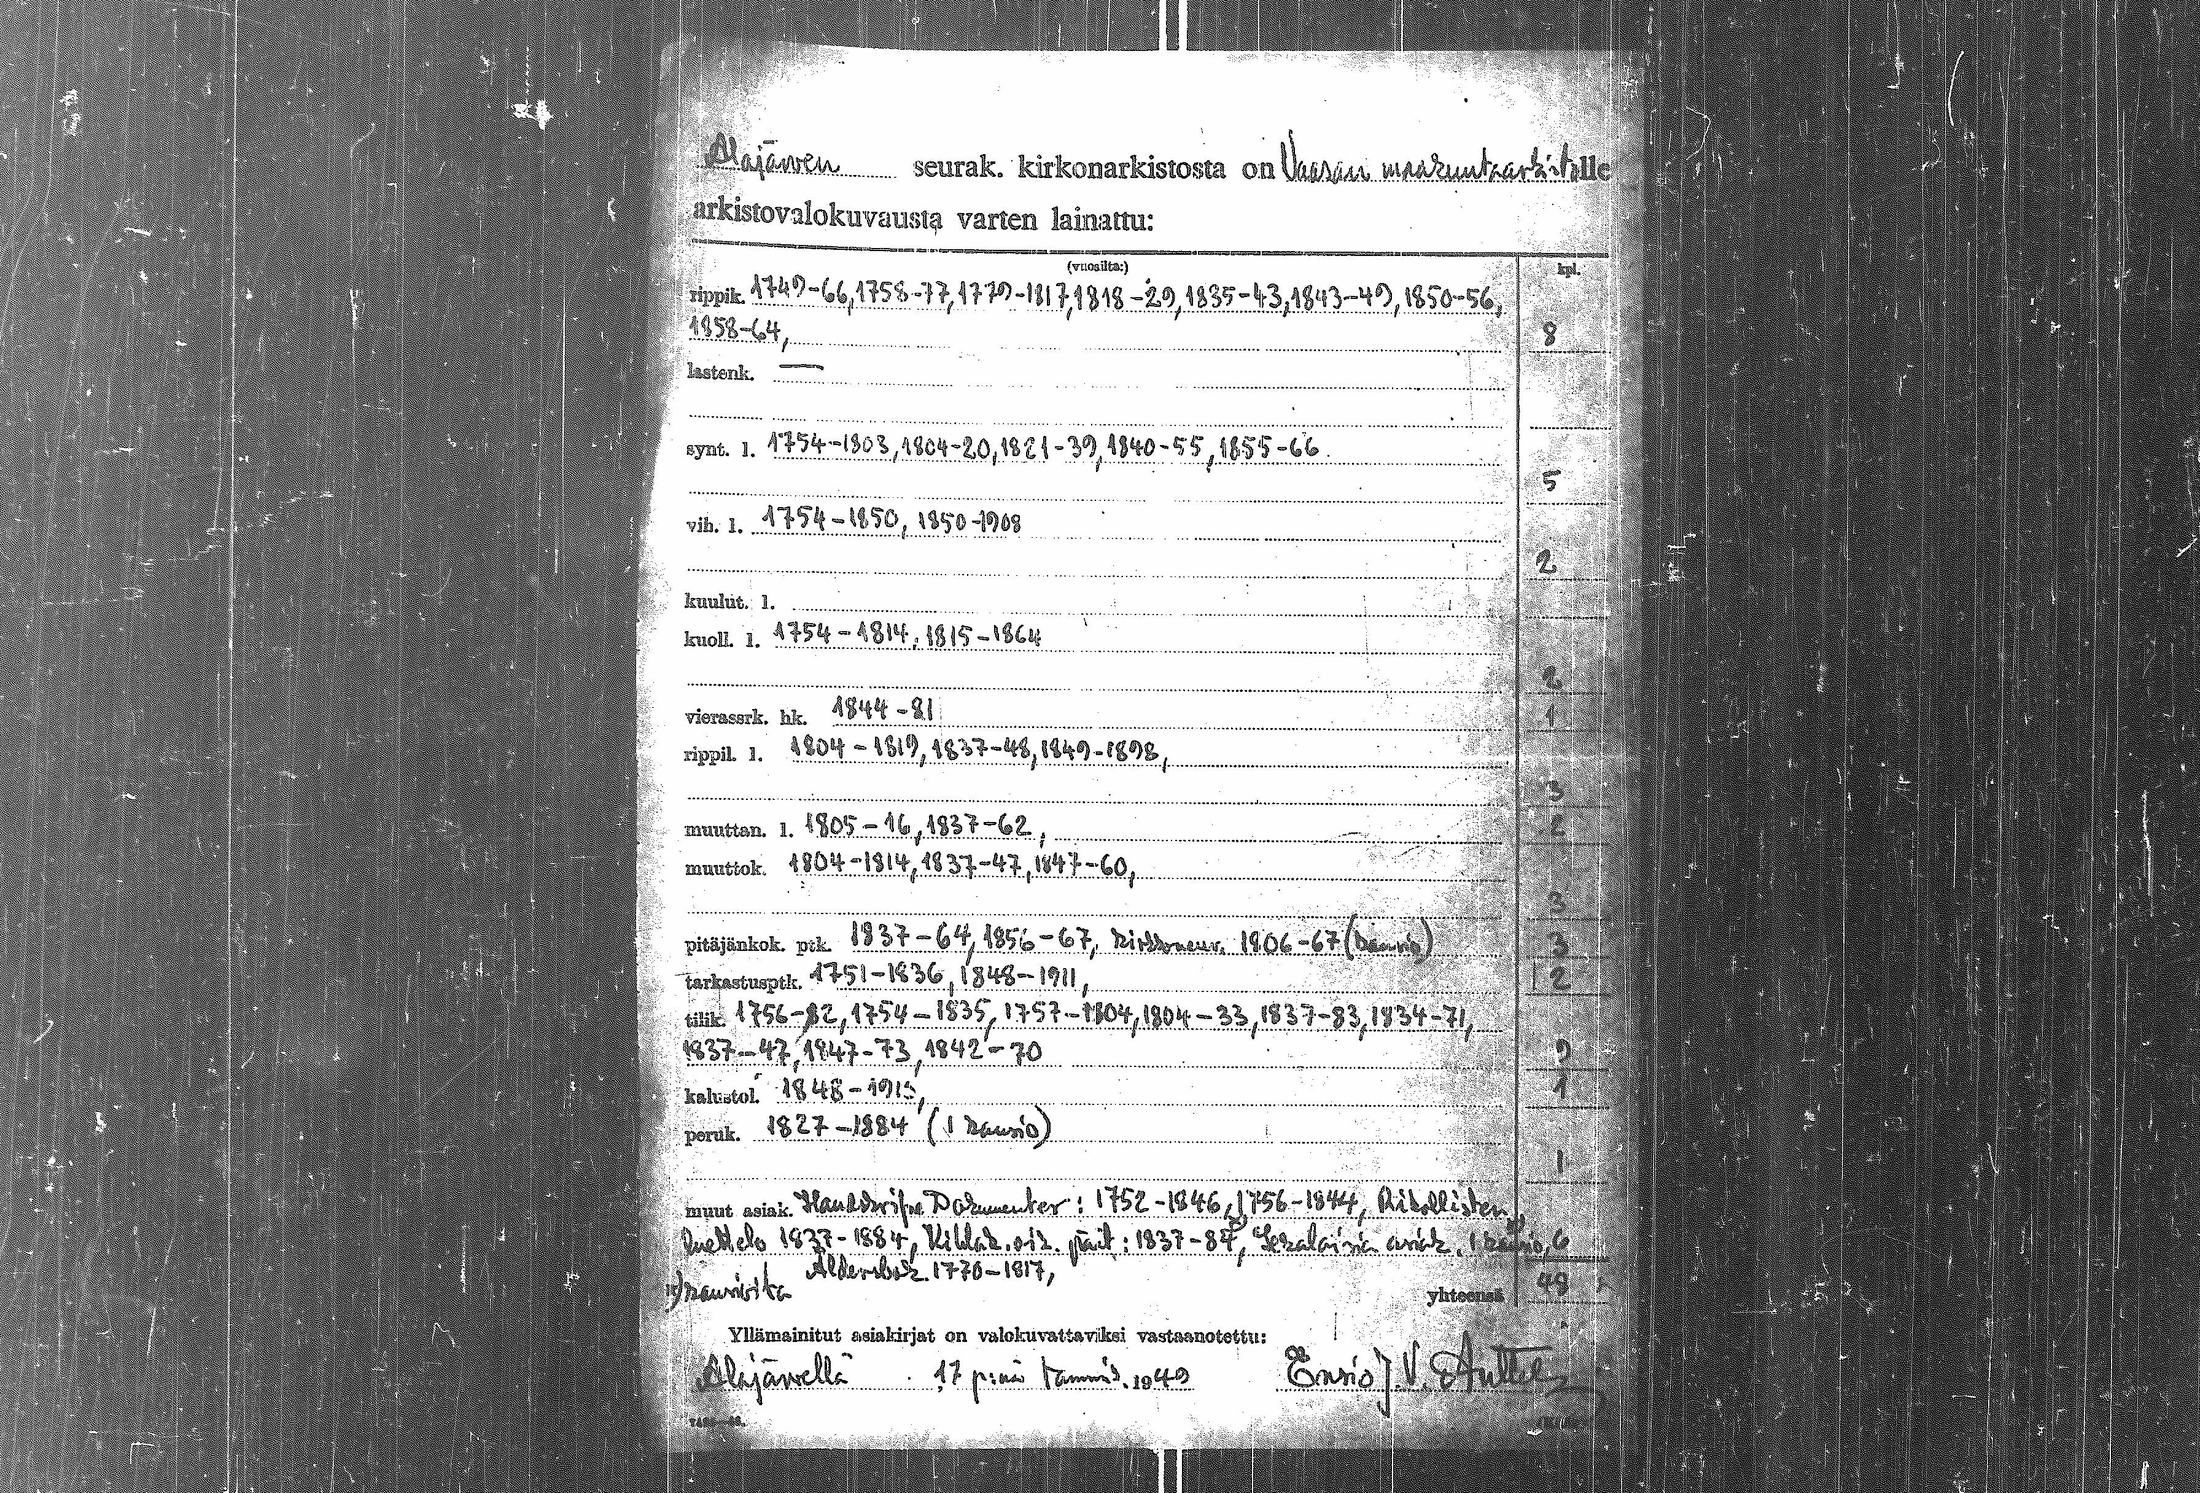 Alajärven seurak. kirkonarkistosta on Vaasan maakuntaarkistolle
arkistovalokuvausta varten lainattu:
(vuosilta:) kpl.
rippik. 1749-66, 1758-77, 1779-1817, 1818-29, 1835-43, 1843-49, 1850-56,
1858-64, 8
lastenk. —
synt. l. 1754-1803, 1804-20, 1821-39, 1840-55, 1855-66.
5
vih. l. 1754-1850, 1850-1908
2
kuulut. l.
kuoll. l. 1754-1814, 1815-1864
2
vierassrk. hk. 1844-81 1
rippil. l. 1804-1819, 1837-48, 1849-1898,
3
muuttan. l. 1805-16, 1837-62, 2
muuttok. 1804-1814, 1837-47, 1847-60,
3
pitäjänkok. ptk. 1837-64, 1856-67, kirkkoneuv. 1806-67 (kansio) 3
tarkastusptk. 1751-1836, 1848-1911, 2
tilik. 1756-82, 1754-1835, 1757-1804, 1804-33, 1837-83, 1834-71,
1837-47, 1847-73, 1842-70 9
kalustol. 1848-191 1
peruk. 1827-1884 (1 kansio)
1
muut asiak. Dokumenter: 1752-1846, 1756-1844, Rikollisten
luettelo 1837-1884, Kihlak. oik. päät: 1837-87, Sekalaisia asiak. 1 kansio, 6
Åldersbok 1770-1817,
x) kansioita yhteensä 48
Yllämainitut asiakirjat on valokuvattaviksi vastaanotettu:
Alajärvellä 17 p:nä tammik. 1949 Ensio J. V.